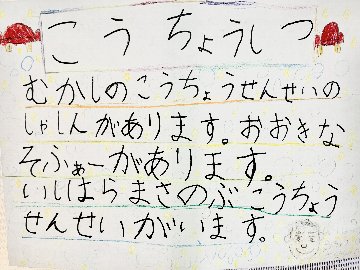 こうちょうしつ
むかしのこうちょうせんせいの
しゃしんがあります。おおきな
そふぁーがあります。
いしはらまさのぶこうちょう
せんせいがいます。